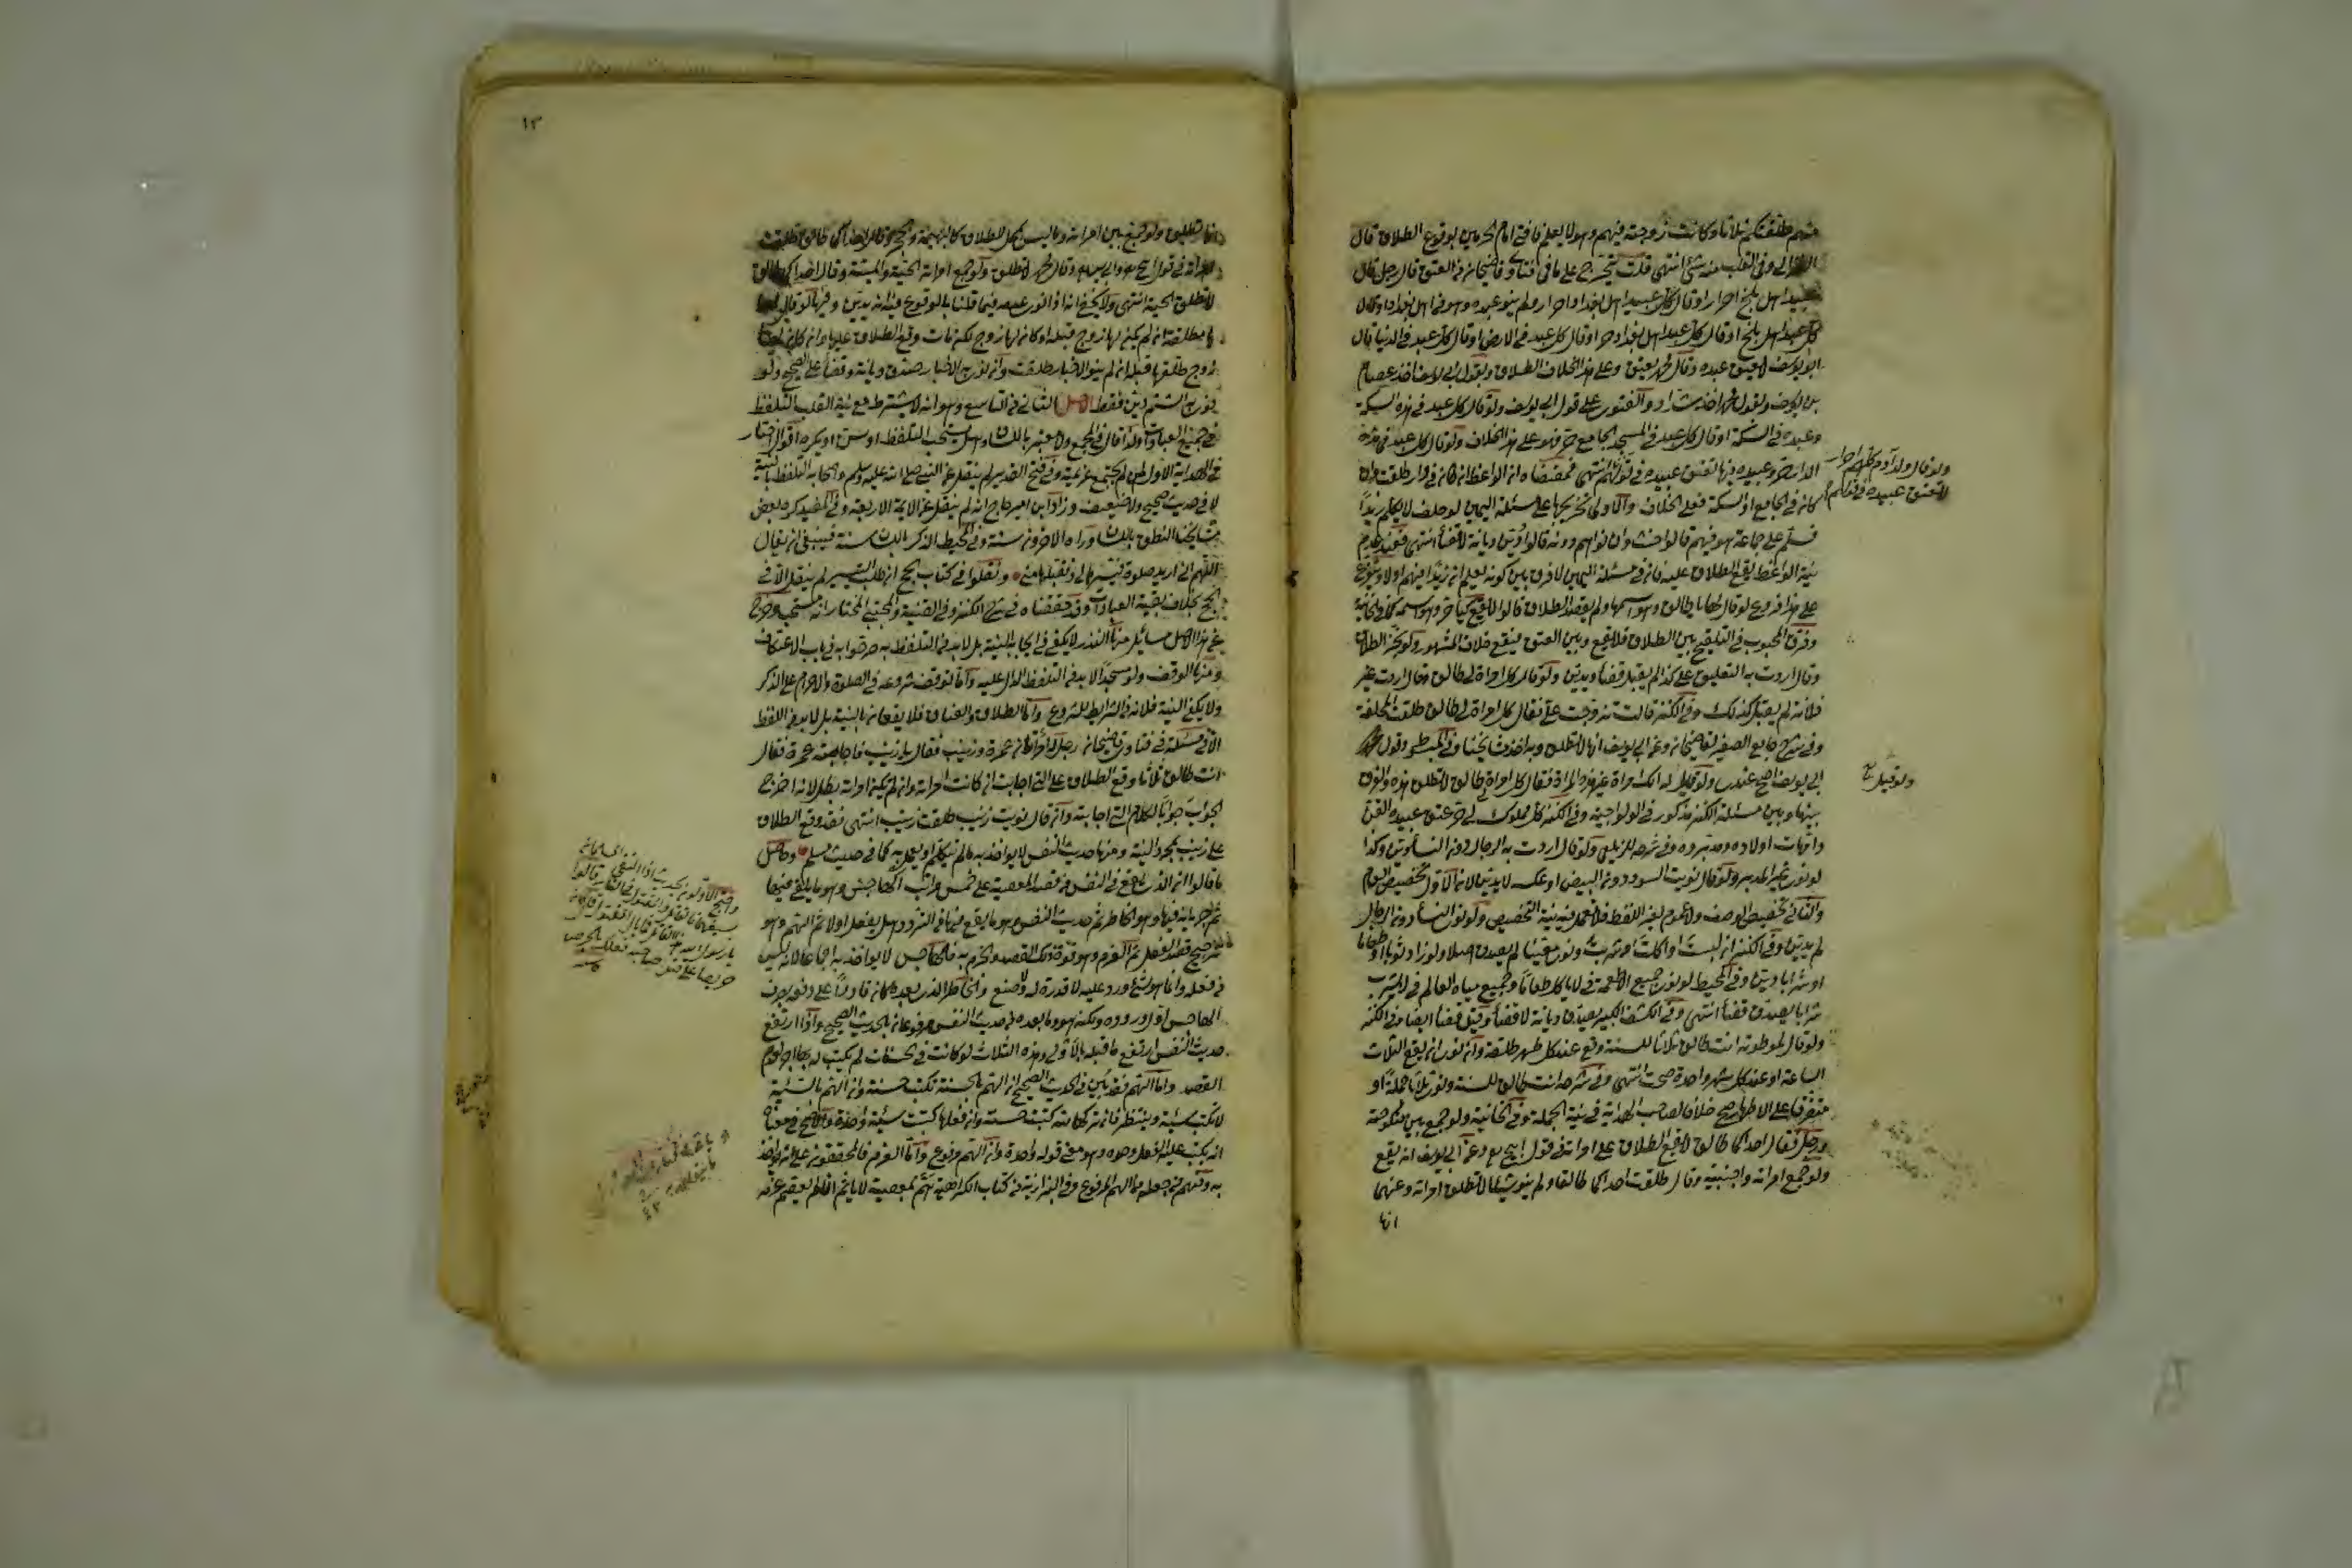 منهم طلقتكم ثلاثا وكانت زوجته فيهم وهو لا يعلم فافتى امام الحرمين بوقوع الطلاق قال
الغزالي وفي القلب منه شئ انتهى قلت يتخرج على ما في فتاوى قاضيخان في العتق قال رجل قال
عبيد اهل بلخ احرار او قال كل عبيد اهل بغداد احرار ولم ينو عبده وهو في اهل بغداد او قال
كل عبد اهل بلخ او قال كل عبد اهل بغداد حر او قال كل عبد في الارض او قال كل عبد في الدنيا قال
ابو يوسف لا يعتق عبده وقال محمد يعتق وعلى هذا الخلاف الطلاق وبقول ابي يوسف اخذ عصام
بن يوسف وبقول محمد اخذ شداد والفتوى على قول ابي يوسف ولو قال كل عبد في هذه السكة
وعبده في السكة او قال كل عبد في المسجد الجامع حر فهو على هذا الخلاف ولو قال كل عبد في هذه
الدار حر وعبيده فيها تعتق عبيده في قولهم انتهى فمقتضاه ان الواعظ ان كان في دار طلقت وان
كان في الجامع او السكة فعلى الخلاف والاولى تخريجها على مسئلة اليمين لو حلف لا يكلم زيدا
فسلم على جماعة هو فيهم قالوا حنث وان نواهم دونه قالوا دين ديانة لا قضاء انتهى فعند عدم
نية الواعظ يقع الطلاق عليه فان في مسئلة اليمين لا فرق بين كونه يعلم ان زيدا فيهم اولا ويتفرع
على هذا فروع لو قال لها يا طالق وهو اسمها ولم يقصد الطلاق قالوا لا يقع كيا حر وهو اسمه كما في الخانية
وفرق المحبوبي في التلقيح بين الطلاق فلا يقع وبين العتق فيقع خلاف المشهور ولو نجز الطلاق
وقال اردت به التعليق على كذا لم يقبل قضاء ويدين ولو قال كل امراة لي طالق وقال اردت غير
فلانة لم يقبل كذلك وفي الكنز قالت تزوجت علي فقال كل امراة لي طالق طلقت المحلفة
وفي شرح جامع الصغير لقاضيخان وعن ابي يوسف انها لا تطلق وبه اخذ مشايخنا وفي المبسوط وقول
ابي يوسف اصح عندي ولو قيل له الك امراة غير هذه المراة فقال كل امراة لي طالق لا تطلق هذه والفرق
بينها وبين مسئلة الكنز مذكور في الولوالجية وفي الكنز كل مملوك لي حر عتق عبيده القن
وامهات اولاده ومدبروه وفي شرحه للزيلعي ولو قال اردت به الرجال دون النساء دين وكذا
لو نوى غير المدبر ولو قال نويت السود دون البيض او عكسه لا يدين لان الاول تخصيص العام
والثاني تخصيص الوصف ولا عموم لغير اللفظ فلا تعمل فيه نية التخصيص ولو نوى النساء دون الرجال
لم يدين وفي الكنز ان لبست او اكلت او شربت ونوى معينا لم يصدق اصلا ولو زاد ثوبا او طعاما
او شرابا دين وفي المحيط لو نوى جميع الاطعمة في لا ياكل طعاما وجميع مياه العالم في لا يشرب
شرابا يصدق قضاء انتهى وفي الكشف الكبير يصدق ديانة لا قضاء وقيل قضاء ايضا وفي الكنز
ولو قال لموطوئته انت طالق ثلاثا للسنة وقع عند كل طهر طلقة وان نوى ان يقع الثلاث
الساعة او عند كل شهر واحدة صحت انتهى وفي شرحه انت طالق للسنة ونوى ثلاثا جملة او
متفرقا على الاطهار صح خلافا لصاحب الهداية في نية الجملة وفي الخانية ولو جمع بين منكوحته
ورجل فقال احداكما طالق لا يقع الطلاق على امراته في قول ابي ح وعن ابي يوسف انه يقع
ولو جمع امراته واجنبية وقال طلقت احداكما طالقا ولم ينو شيئا لا تطلق امراته وعنهما
انها
ولو قال ولد آدم كلهم احرار
لا تعتق عبيده في قولهم
ولو قيل له
١٣
انها تطلق ولو جمع بين امراته وما ليس بمحل للطلاق كالبهيمة والحجر وقال احداكما طالق طلقت
امراته في قول ابي ح وابي يوسف وقال محمد لا تطلق ولو جمع امراته الحية والميتة وقال احداكما طالق
لا تطلق الحية انتهى ولا يخفى انه اذا نوى عدمه فيما قلنا بالوقوع فيه انه يدين وفيها لو قال لها
يا مطلقة ان لم يكن لها زوج قبله او كان لها زوج لكن مات وقع الطلاق عليها وان كان لها
زوج طلقها قبله ان لم ينو الاخبار طلقت وان نوى به الاخبار صدق ديانة وقضاء على الصحيح ولو
نوى به الشتم دين فقط الاصل الثاني في التاسع وهو انه لا يشترط مع نية القلب التلفظ
في جميع العبادات ولذا قال في المجمع ولا معتبر باللسان وهل يستحب التلفظ او يسن او يكره اقوال اختار
في الهداية الاول لمن لم تجتمع عزيمته وفي فتح القدير لم ينقل عن النبي صلى الله عليه وسلم واصحابه التلفظ بالنية
لا في حديث صحيح ولا ضعيف وزاد ابن امير حاج انه لم ينقل عن الايمة الاربعة وفي المفيد كره بعض
مشايخنا النطق باللسان وراه الاخرون سنة وفي المحيط الذكر باللسان سنة فينبغي ان يقال
اللهم اني اريد صلوة فيسرها لي وتقبلها مني ونقلوا في كتاب الحج ان طلب التيسير لم ينقل الا في
الحج بخلاف بقية العبادات وقد حققناه في شرح الكنز وفي القنية والمجتبى المختار انه مستحب وخرج
عن هذا الاصل مسائل منها النذر لا يكفي في ايجابه النية بل لا بد من التلفظ به صرحوا به في باب الاعتكاف
ومنها الوقف ولو مسجدا لا بد من التلفظ الدال عليه واما توقف شروعه في الصلوة والاحرام على الذكر
ولا يكفي النية فلانه من الشرائط للشروع واما الطلاق والعتاق فلا يقعان بالنية بل لا بد من اللفظ
الا في مسئلة في فتاوى قاضيخان رجل له امراتان عمرة وزينب فقال يا زينب فاجابته عمرة فقال
انت طالق ثلاثا وقع الطلاق على التي اجابت ان كانت امراته وان لم يكن امراته بطل لانه اخرج
الجواب جوابا لكلام التي اجابته وان قال نويت زينب طلقت زينب انتهى فقد وقع الطلاق
على زينب بمجرد النية ومنها حديث النفس لا يواخذ به ما لم يتكلم او يعمل به كما في حديث مسلم وحاصل
ما قالوا ان الذي يقع في النفس من قصد المعصية على خمس مراتب الهاجس وهو ما يلقى فيها
ثم جريانه فيها وهو الخاطر ثم حديث النفس وهو ما يقع فيها من التردد هل يفعل اولا ثم الهم وهو
ترجيح قصد الفعل ثم العزم وهو قوة ذلك القصد والجزم به فالهاجس لا يواخذ به اجماعا لانه ليس
من فعله وانما هو شئ ورد عليه لا قدرة له ولا صنع والخاطر الذي بعده كان قادرا على دفعه بصرف
الهاجس اول وروده ولكنه هو وما بعده من حديث النفس مرفوعان بالحديث الصحيح واذا ارتفع
حديث النفس ارتفع ما قبله بالاولى وهذه الثلاث لو كانت في الحسنات لم يكتب له بها اجر لعدم
القصد واما الهم فقد بين في الحديث الصحيح ان الهم بالحسنة تكتب حسنة وان الهم بالسيئة
لا تكتب سيئة وينتظر فان تركها لله كتبت حسنة وان فعلها كتبت سيئة واحدة والاصح في معناه
انه يكتب عليه الفعل وحده وهو معنى قوله واحدة وان الهم مرفوع واما العزم فالمحققون على انه يواخذ
به ومنهم من جعله من الهم المرفوع وفي البزازية من كتاب الكراهية هم بمعصية لا ياثم ان لم يصمم عزمه